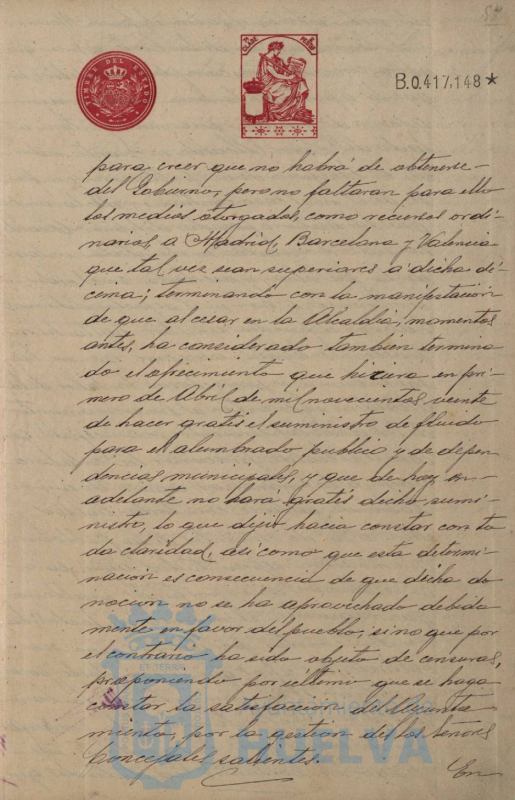 54
TIMBRE DEL ESTADO
7ª CLASE
B.0.417,148 *
para creer que no habrá de obtenerse
del Gobierno, pero no faltaran para ello
los medios otorgados, como recursos ordi-
narios, a Madrid, Barcelona y Valencia
que tal vez sean superiores a dicha dé-
cima; terminando con la manifestación
de que al cesar en la Alcaldia, momentos
antes, ha considerado tambien termina
do el ofrecimiento que hiciera en pri-
mero de Abril de mil novecientos veinte
de hacer gratis el suministro de fluido
para el alumbrado publico y de depen
dencias municipales, y que de hoy en
adelante no hará gratis dicho sumi-
nistro, lo que dijo hacia constar con to
da claridad, asi como que esta determi-
nacion es consecuencia de que dicha do
nacion no se ha aprovechado debida
mente en favor del pueblo, sino que por
el contrario ha sido objeto de censuras,
proponiendo por ultimo que se haga
constar la satisfaccion del Ayunta-
miento, por la gestion de los Señores
Concejales salientes.
En
HUELVA